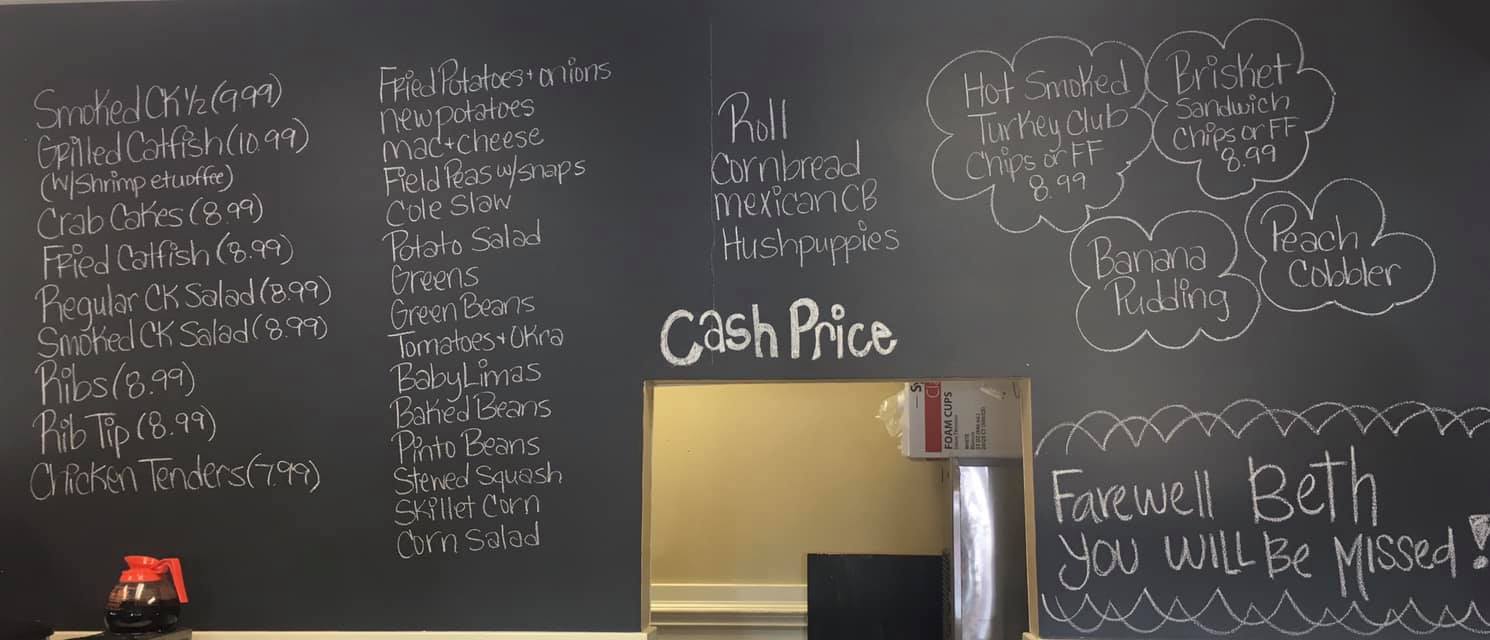 Smoked CK ½ (9.99)
Grilled Catfish (10.99)
(w/Shrimp etuoffee)
Crab Cakes (8.99)
Fried Catfish (8.99)
Regular CK Salad (8.99)
Smoked CK Salad (8.99)
Ribs (8.99)
Rib Tip (8.99)
Chicken Tenders (7.99)
Fried Potatoes + onions
new potatoes
mac + cheese
Field Peas w/snaps
Cole Slaw
Potato Salad
Greens
Green Beans
Tomatoes + Okra
Baby Limas
Baked Beans
Pinto Beans
Stewed Squash
Skillet Corn
Corn Salad
Roll
Cornbread
mexican CB
Hushpuppies
Cash Price
Hot Smoked
Turkey Club
Chips or FF
8.99
Brisket
Sandwich
Chips or FF
8.99
Banana
Pudding
Peach
Cobbler
FOAM CUPS
Farewell Beth
You Will Be Missed!